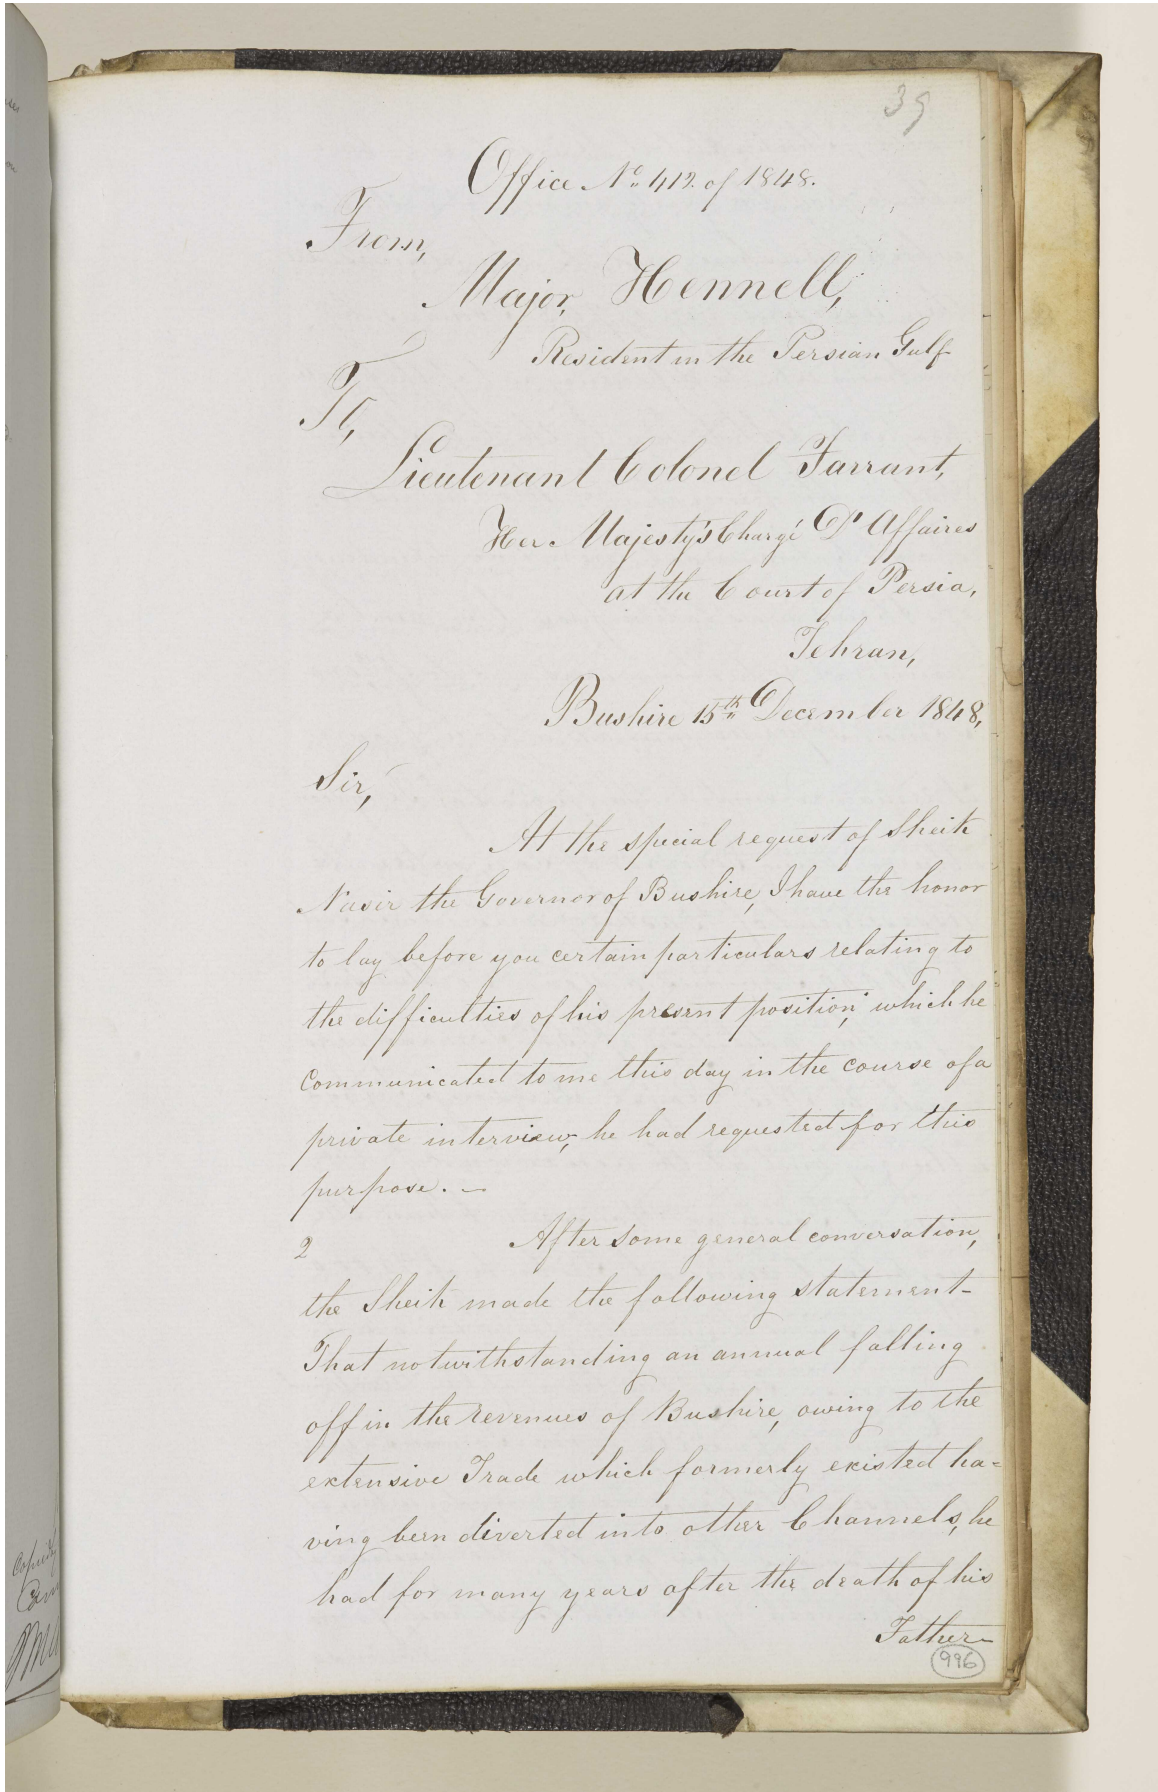 39
Office No. 412 of 1848.
From,
Major, Hennell,
Resident in the Persian Gulf
To,
Lieutenant Colonel Farrant,
Her Majesty's Chargé D'Affaires
at the Court of Persia,
Tehran,
Bushire 15th December 1848,
Sir,
At the special request of Sheik
Nasir the Governor of Bushire, I have the honor
to lay before you certain particulars relating to
the difficulties of his present position, which he
communicated to me this day in the course of a
private interview, he had requested for this
purpose. —
2 After some general conversation,
the Sheik made the following statement -
That notwithstanding an annual falling
off in the revenues of Bushire, owing to the
extensive Trade which formerly existed ha=
ving been diverted into other Channels, he
had for many years after the death of his
Father
996